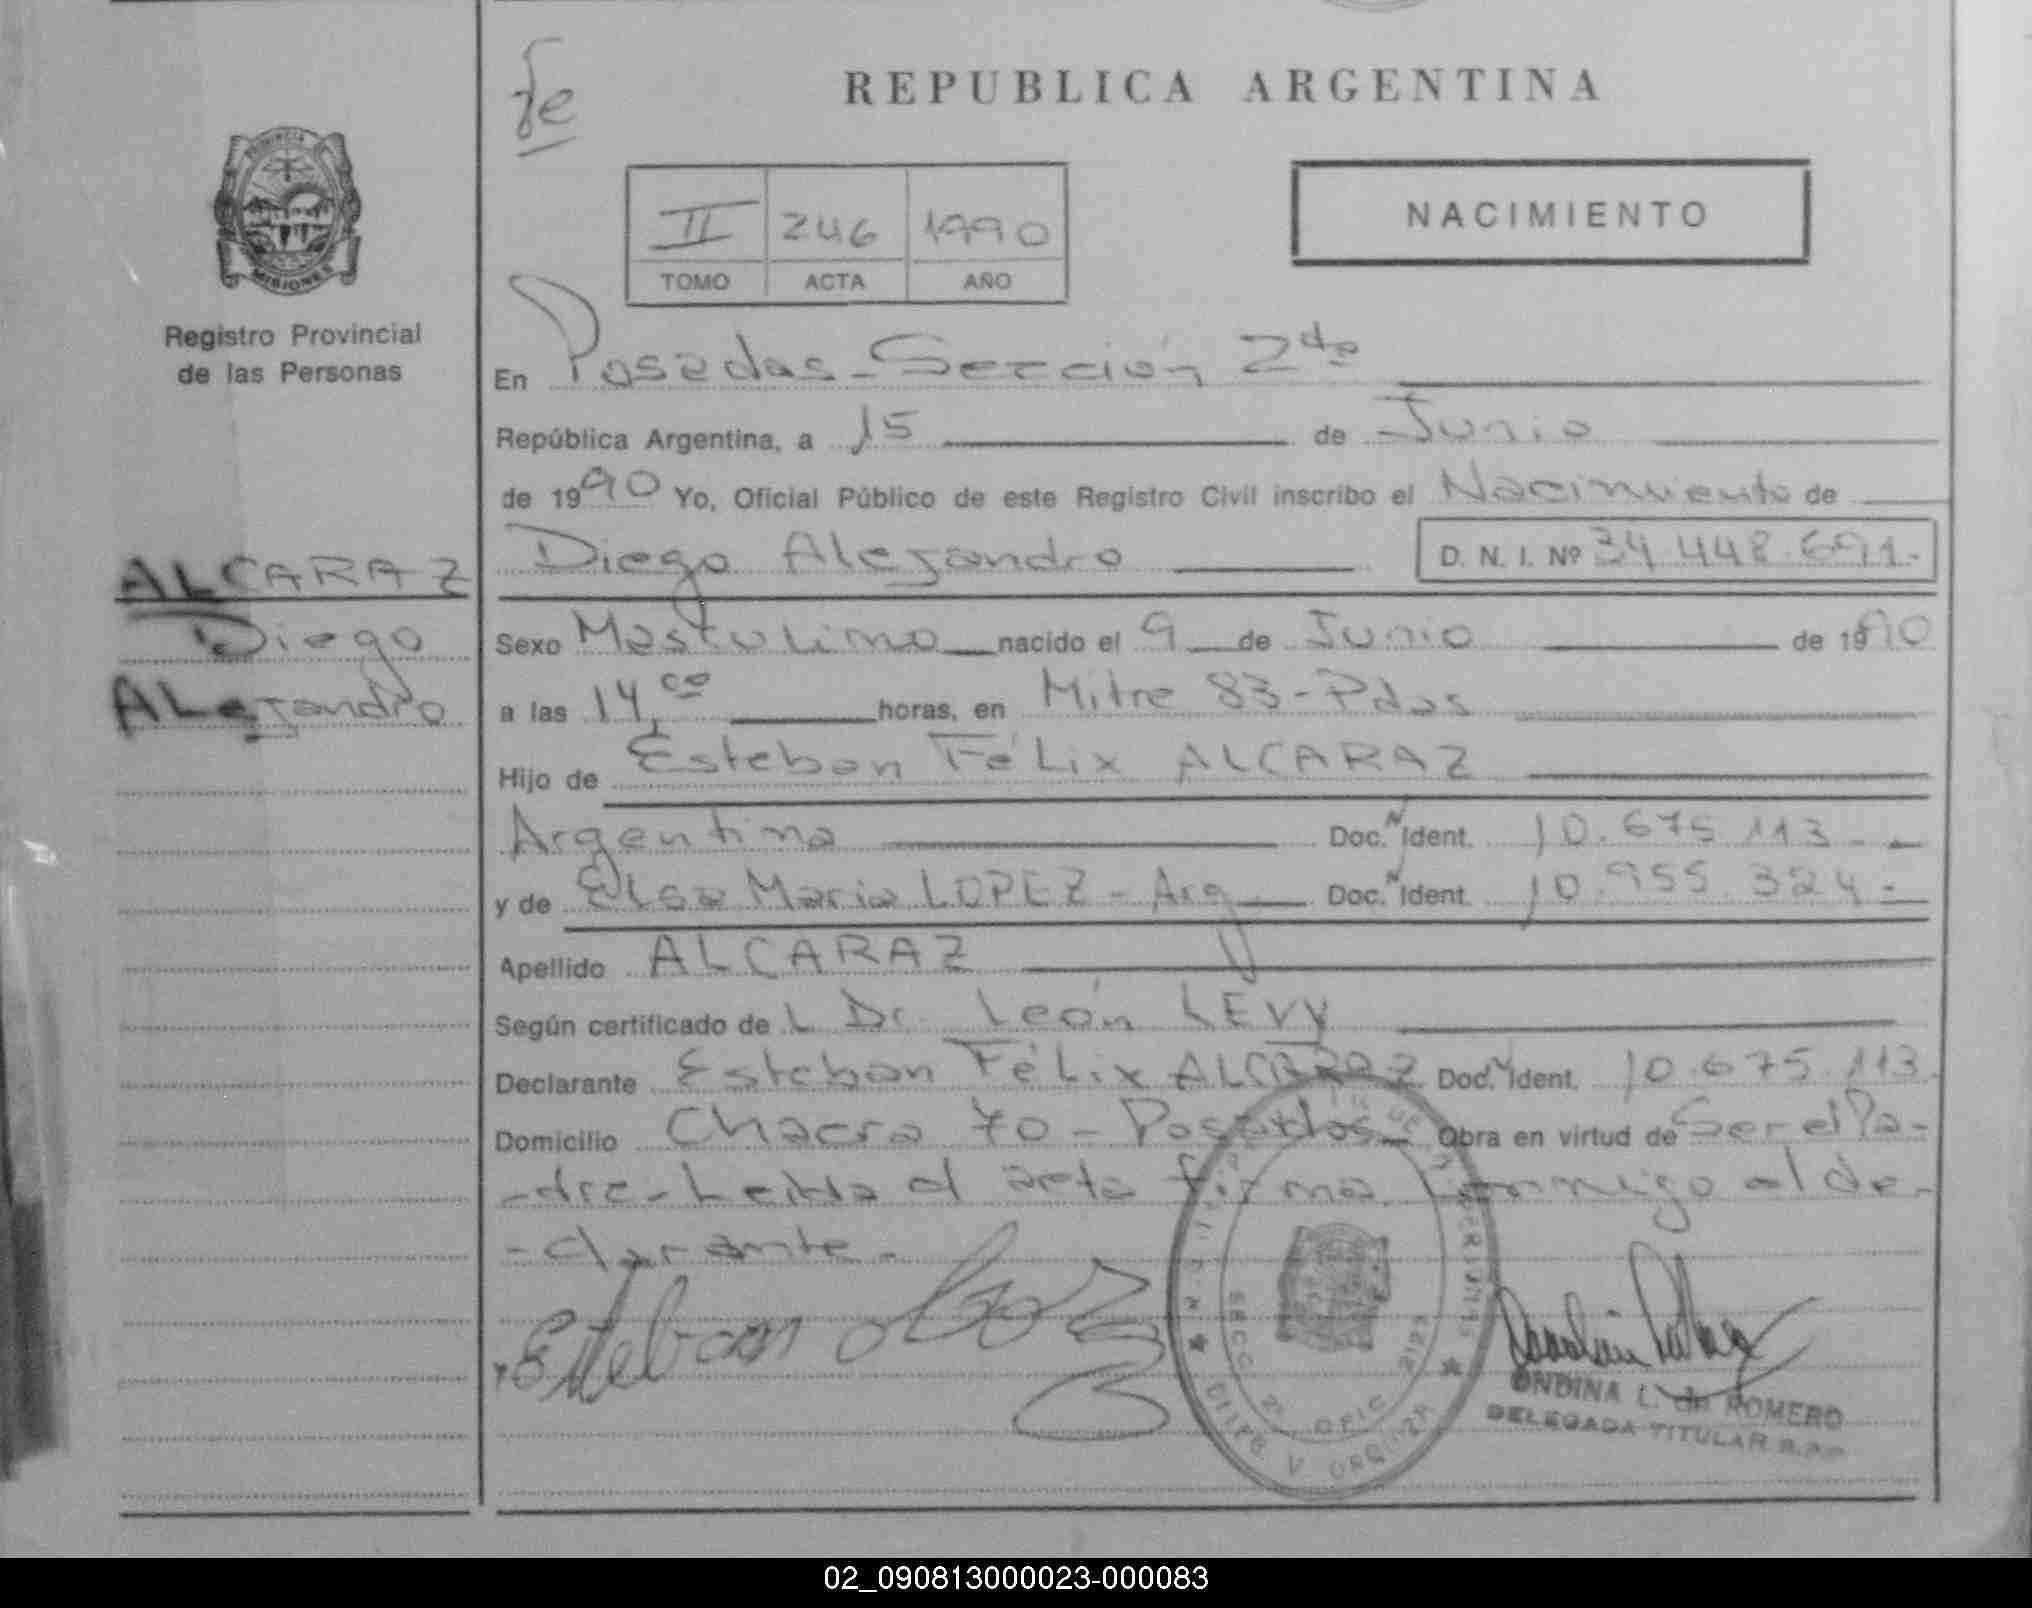 fe
REPUBLICA ARGENTINA
PROVINCIA
MISIONES
II 246 1990
TOMO ACTA AÑO
NACIMIENTO
Registro Provincial
de las Personas
En Posadas - Sección 2da
República Argentina, a 15 de Junio
de 1990 Yo, Oficial Público de este Registro Civil inscribo el Nacimiento de
ALCARAZ
Diego
Alejandro
Diego Alejandro D. N. I. Nº 34.448.691.-
Sexo Masculino nacido el 9 de Junio de 1990
a las 14,00 horas, en Mitre 83 - Pdas
Hijo de Esteban Félix ALCARAZ
Argentina Doc. N Ident. 10.675.113 -
y de Elsa Maria LOPEZ - Arg Doc. N Ident. 10.955.324 -
Apellido ALCARAZ
Según certificado de L Dr. León LEVY
Declarante Esteban Félix ALCARAZ Doc. N Ident. 10.675.113
Domicilio Chacra 70 - Posadas - Obra en virtud de Ser el Pa-
-dre - Leida el acta firma conmigo el de-
-clarante -
Esteban
SECC 2ª OFIC
ONDINA L. de ROMERO
DELEGADA TITULAR R.P.P
02_090813000023-000083